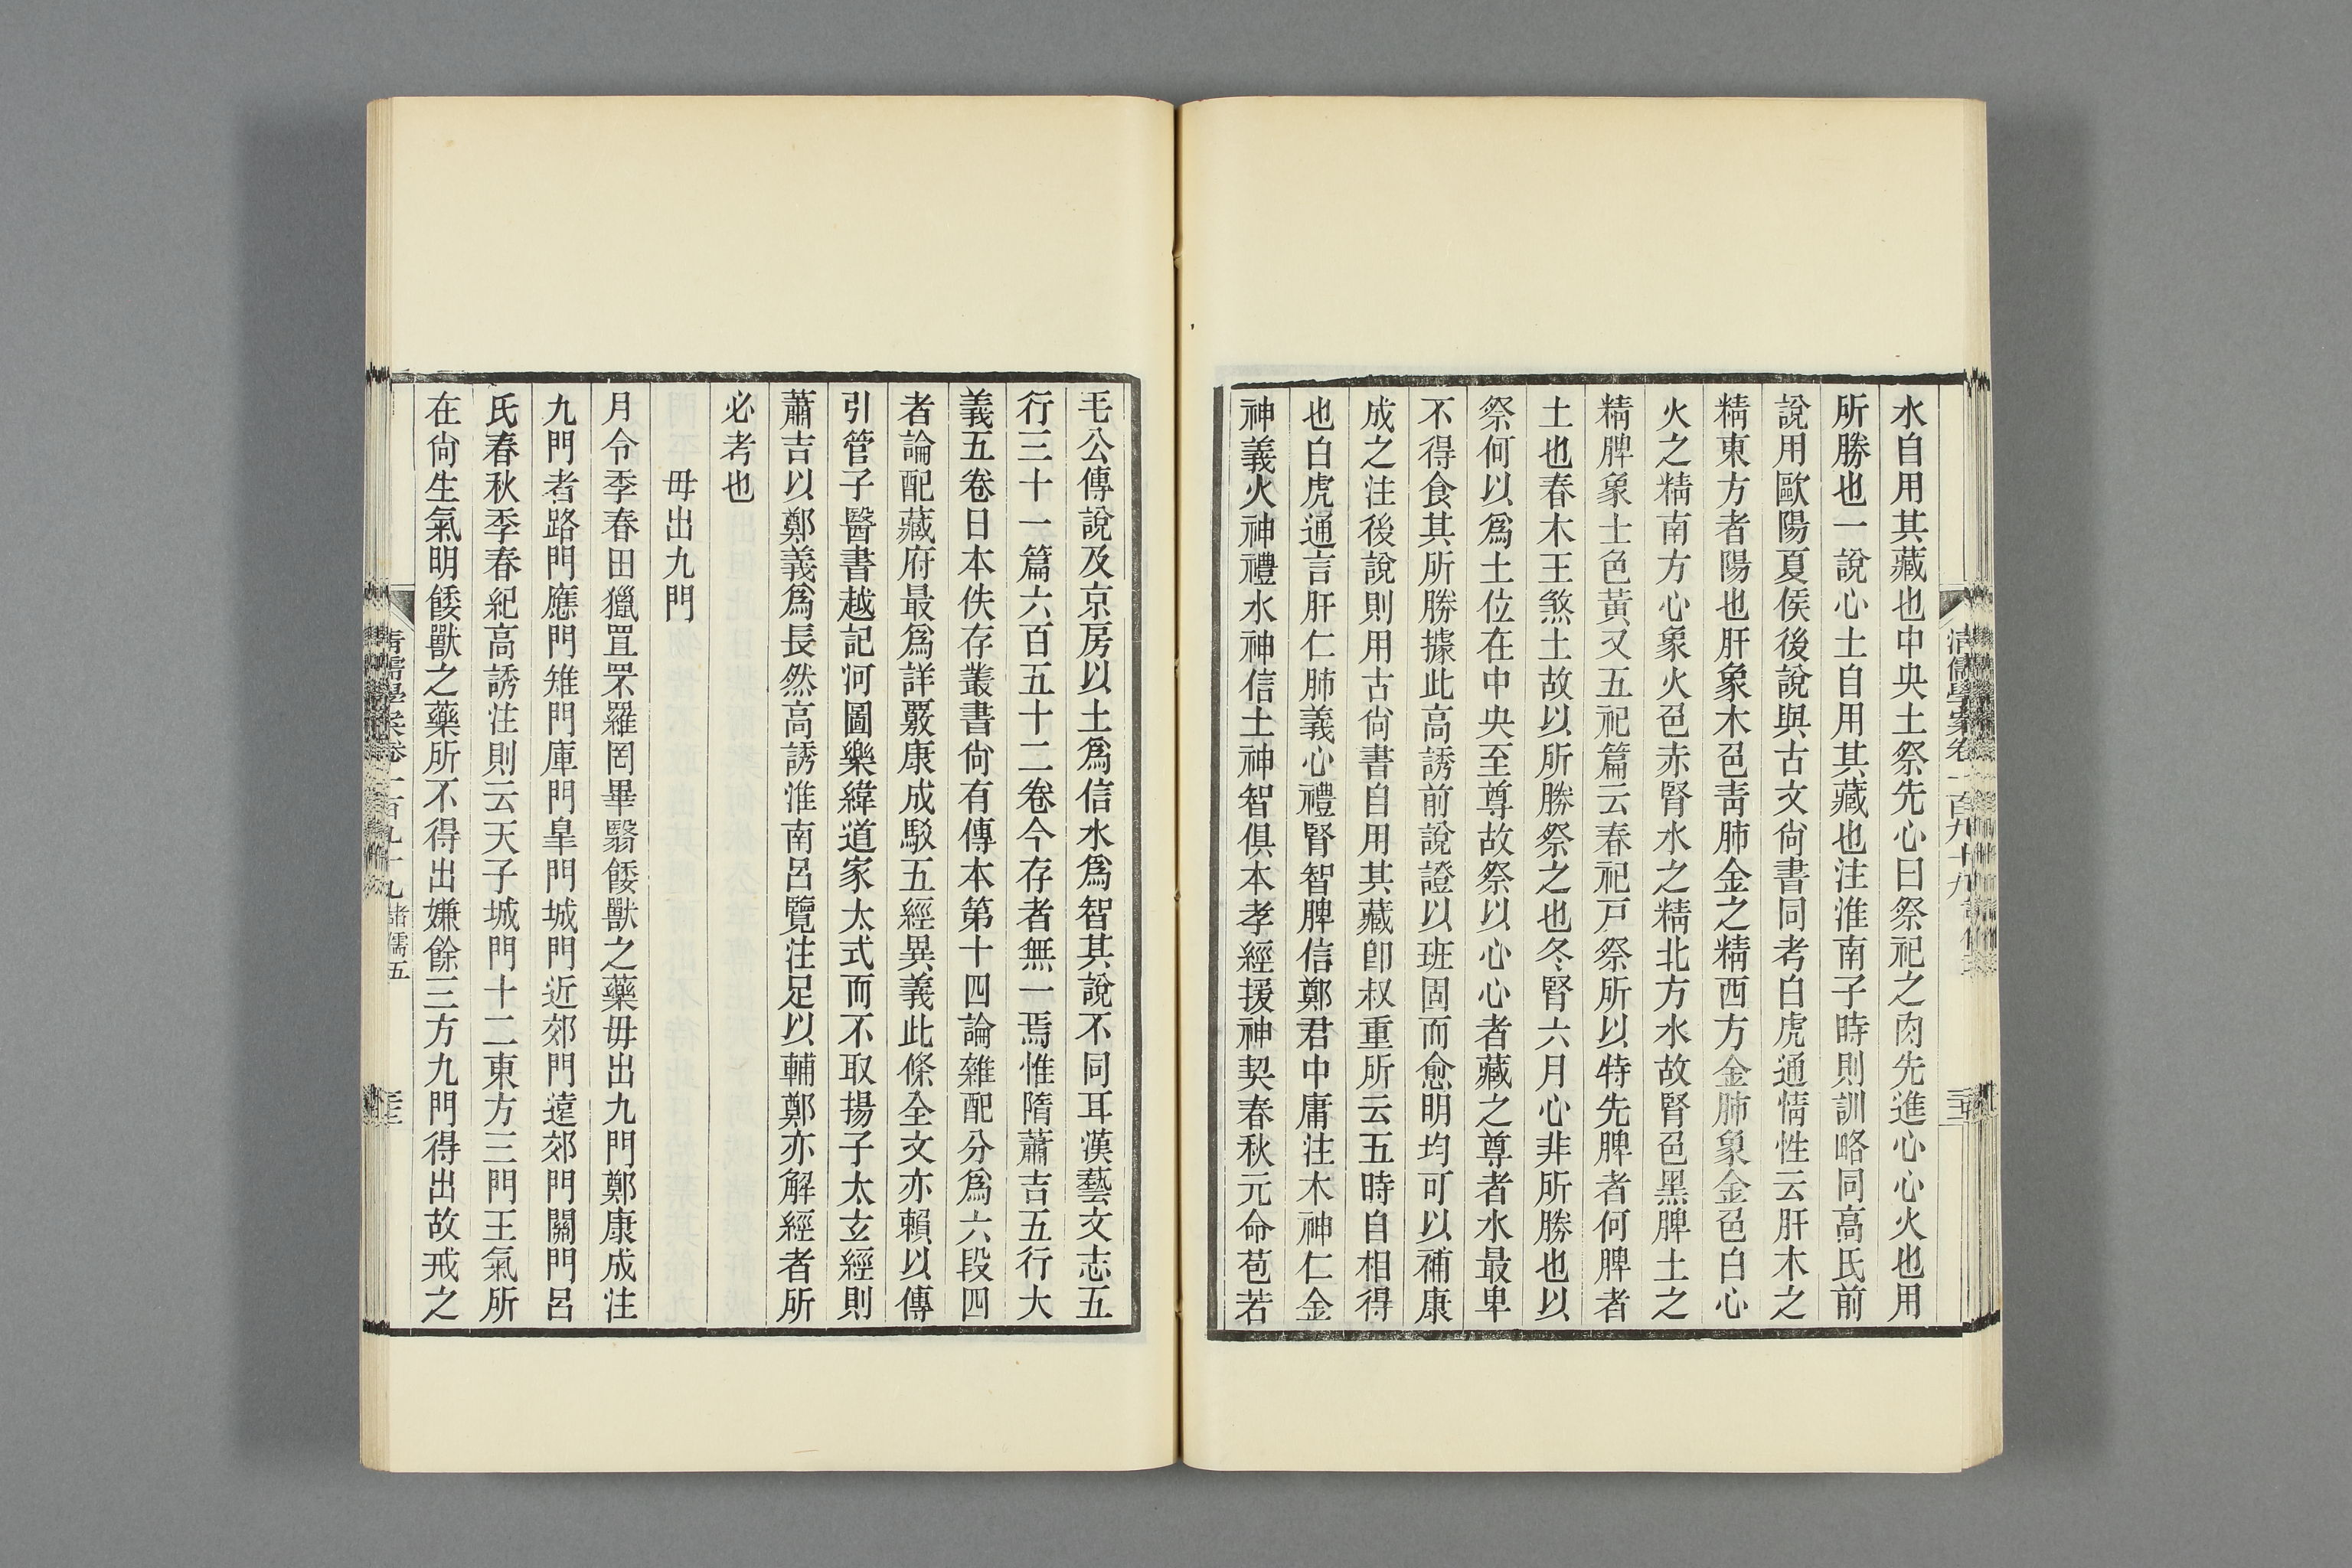 水自用其藏也中央土祭先心曰祭祀之肉先進心心火也用
所勝也一說心土自用其藏也注淮南子時則訓略同高氏前
說用歐陽夏侯後說與古文尙書同考白虎通情性云肝木之
精東方者陽也肝象木色靑肺金之精西方金肺象金色白心
火之精南方心象火色赤腎水之精北方水故腎色黑脾土之
精脾象土色黃又五祀篇云春祀戶祭所以特先脾者何脾者
土也春木王煞土故以所勝祭之也冬腎六月心非所勝也以
祭何以爲土位在中央至尊故祭以心心者藏之尊者水最卑
不得食其所勝據此高誘前說證以班固而愈明均可以補康
成之注後說則用古尙書自用其藏卽叔重所云五時自相得
也白虎通言肝仁肺義心禮腎智脾信鄭君中庸注木神仁金
神義火神禮水神信土神智俱本孝經援神契春秋元命苞若
淸儒學案卷一百九十九
毛公傳說及京房以土爲信水爲智其說不同耳漢藝文志五
行三十一篇六百五十二卷今存者無一焉惟隋蕭吉五行大
義五卷日本佚存叢書尙有傳本第十四論雜配分爲六段四
者論配藏府最爲詳覈康成駁五經異義此條全文亦賴以傳
引管子醫書越記河圖樂緯道家太式而不取揚子太玄經則
蕭吉以鄭義爲長然高誘淮南呂覽注足以輔鄭亦解經者所
必考也
毋出九門
月令季春田獵罝罘羅罔畢翳餧獸之藥毋出九門鄭康成注
九門者路門應門雉門庫門皐門城門近郊門遠郊門關門呂
氏春秋季春紀高誘注則云天子城門十二東方三門王氣所
在尙生氣明餧獸之藥所不得出嫌餘三方九門得出故戒之
淸儒學案卷一百九十九 諸儒五